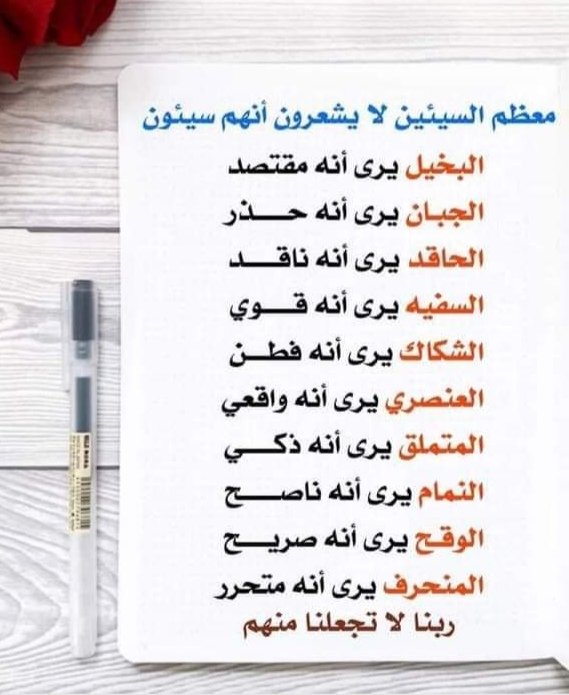 معظم السيئين لا يشعرون أنهم سيئون
البخيل يرى أنه مقتصد
الجبان يرى أنه حـــذر
الحاقد يرى أنه ناقــد
السفيه يرى أنه قـــوي
الشكاك يرى أنه فطــن
العنصري يرى أنه واقعي
المتملق يرى أنه ذكــي
النمام يرى أنه ناصــح
الوقـح يرى أنه صريــح
المنحرف يرى أنه متحرر
ربنا لا تجعلنا منهم